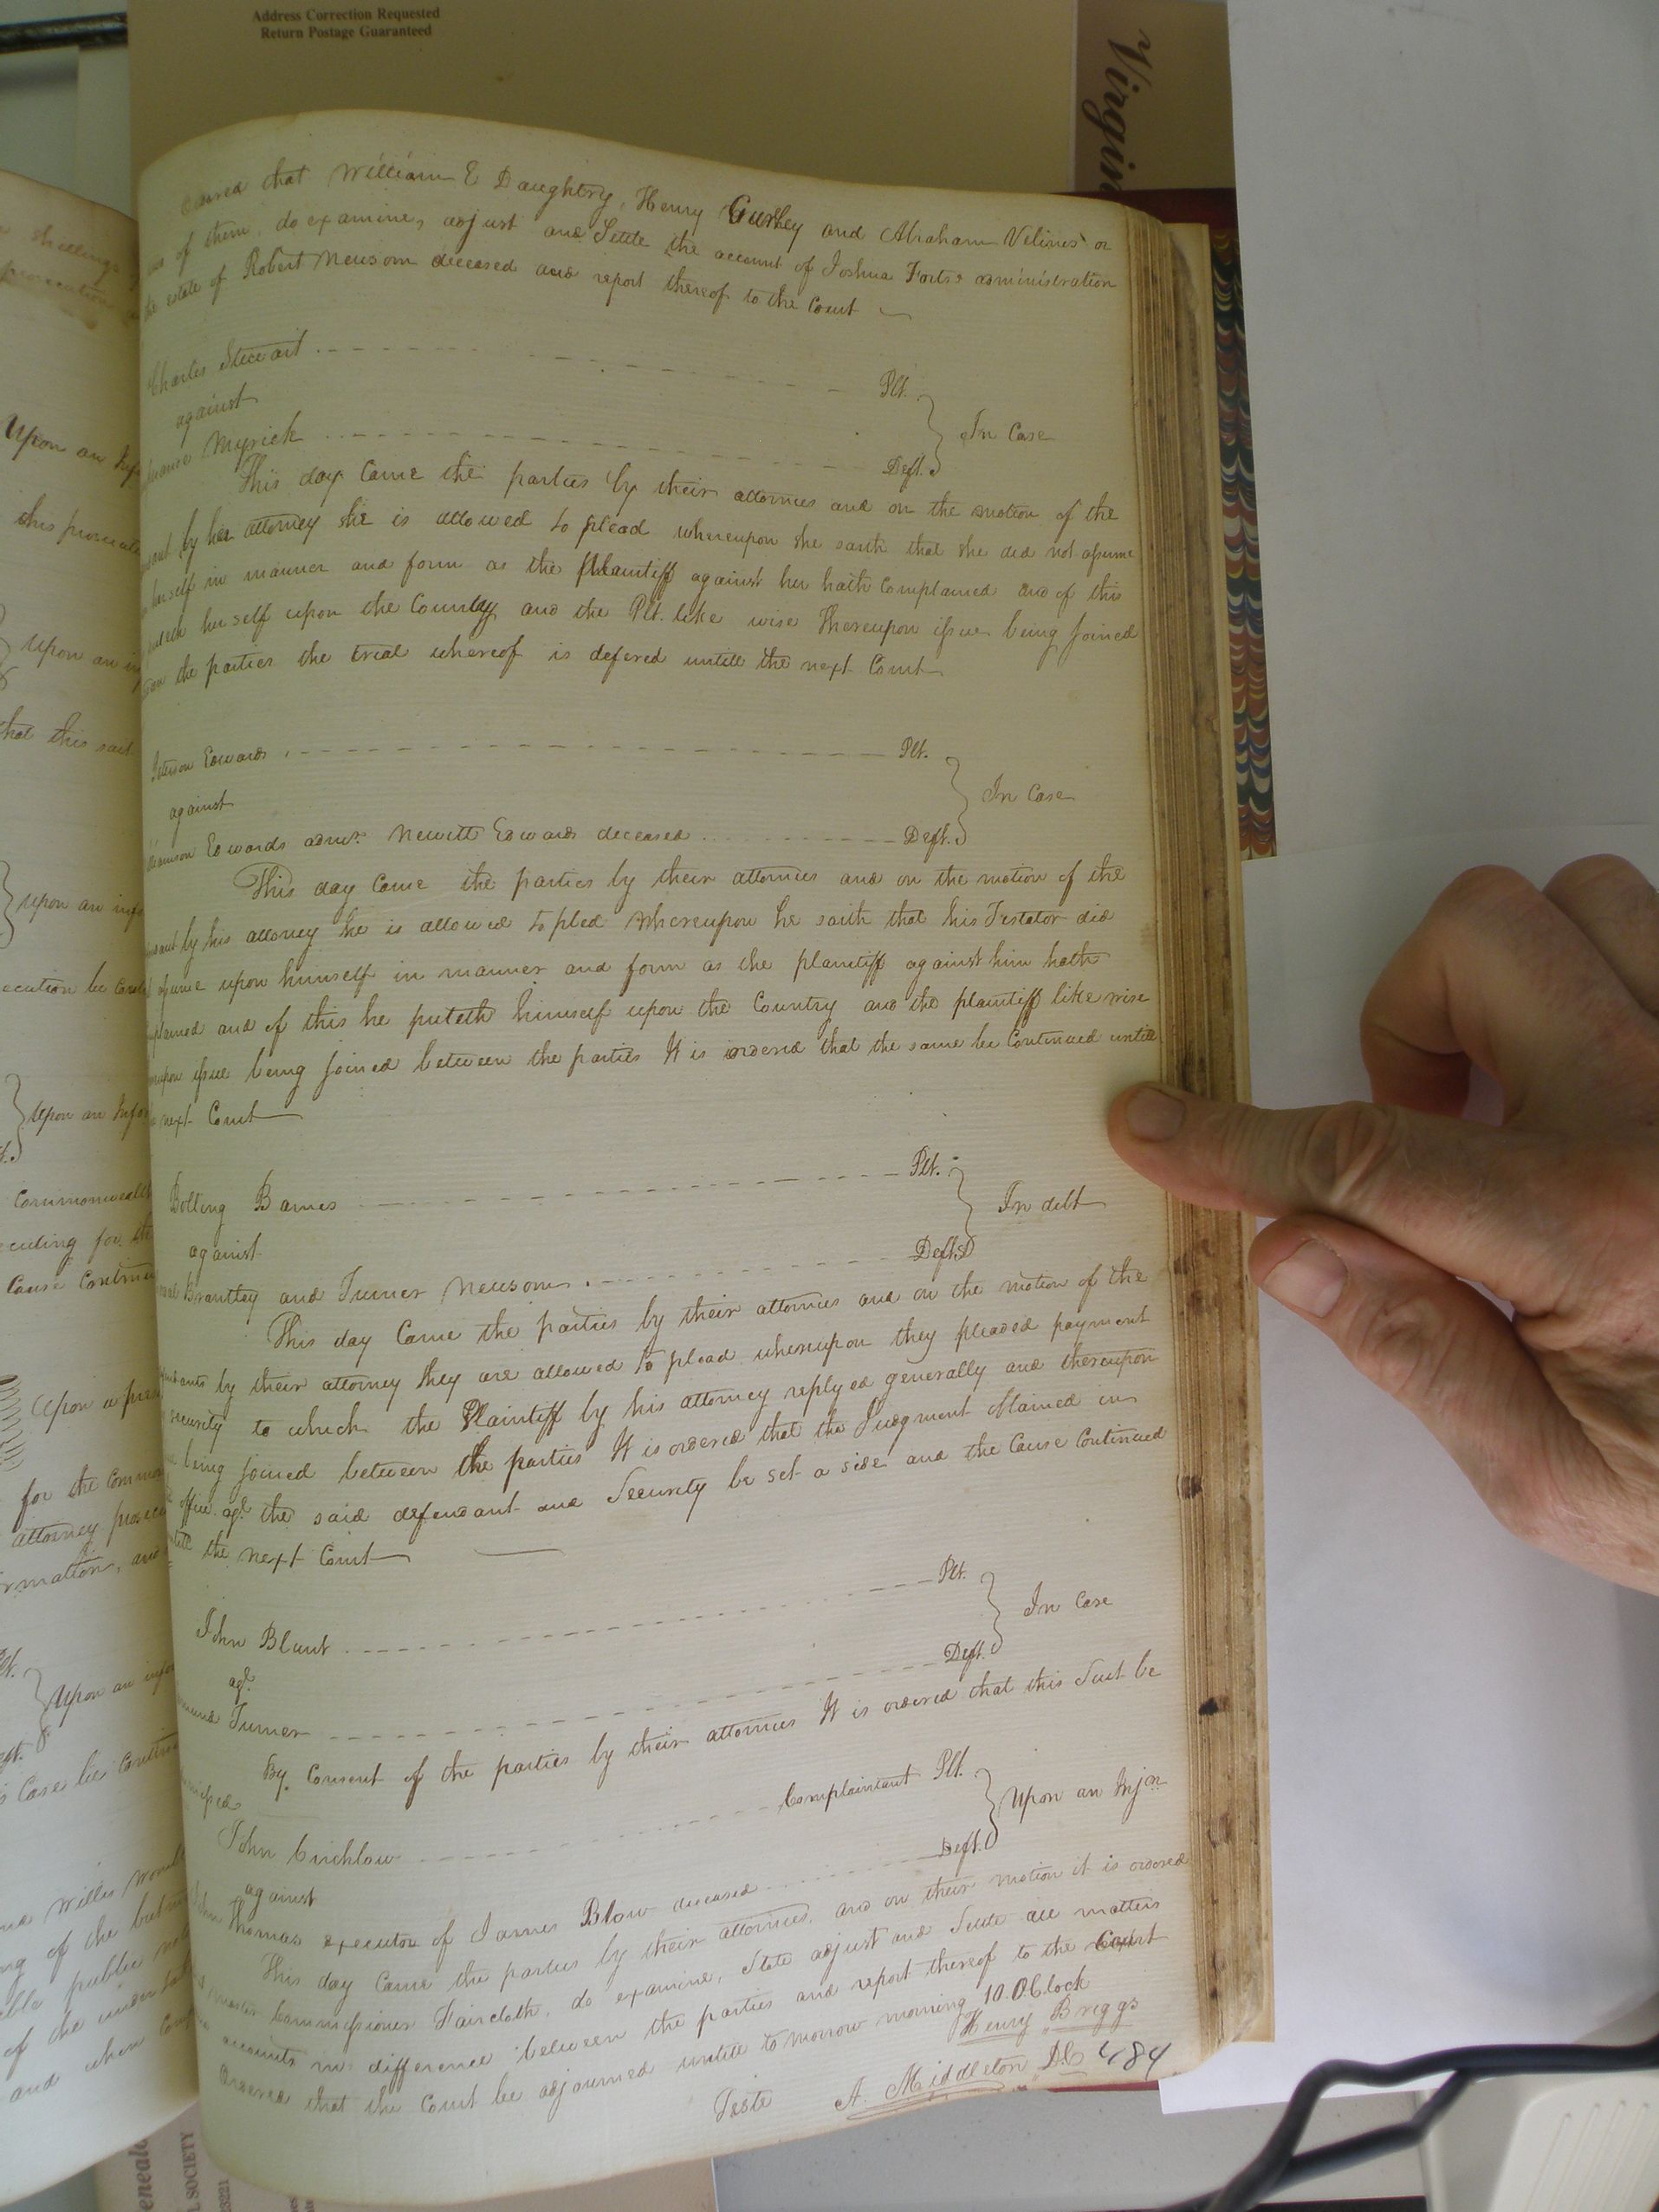 Address Correction Requested
Return Postage Guaranteed
Virgin
that William E Daughtry, Henry Gurley and Abraham Velines or
of them, do examine, adjust and Settle the account of Joshua Forts administration
the estate of Robert Newsom deceased and report thereof to the Court
Charles Stewart Plt.
against In Case
Myrick Deft.
This day Came the parties by their attornies and on the motion of the
by her attorney she is allowed to plead whereupon she saith that she did not assume
herself in manner and form as the Plaintiff against her hath Complained and of this
her self upon the Country and the Plt. like wise Thereupon issue being Joined
the parties the trial whereof is defered untill the next Court
Edwards Plt.
against In Case
Edwards admr. Newitt Edwards deceased Deft.
This day Came the parties by their attornies and on the motion of the
by his attorney he is allowed to pled Whereupon he saith that his Testator did
assume upon himself in manner and form as the plaintiff against him hath
and of this he puteth himself upon the Country and the plaintiff like wise
issue being Joined between the parties It is ordered that the same be Continued untill
next Court
Bolling Barnes Plt.
against In debt
Brantley and Turner Newsom Defts
This day Came the parties by their attornies and on the motion of the
by their attorney they are allowed to plead whereupon they pleaded payment
security to which the Plaintiff by his attorney replyed generally and thereupon
being Joined between the parties It is ordered that the Judgment Obtained in
office agt. the said defendant and Security be set a side and the Cause Continued
the next Court
John Blunt Plt.
agt. In Case
Turner Deft.
By Consent of the parties by their attornies It is ordered that this Suit be
John Crichlow Complainant Plt.
against Upon an Injon
Thomas executor of James Blow deceased Deft.
This day Came the parties by their attornies, and on their motion it is ordered
Commissioner Faircloth, do examine, State adjust and Settle all matters
accounts in difference between the parties and report thereof to the Court
Ordered that the Court be adjourned untill to morrow morning 10 OClock
Henry Briggs
Teste A. Middleton DC 484
Upon an
Upon an
that this suit
upon an
Upon an
Commonwealth
Cause
Upon a
for the
attorney
Upon an
Case be
Willis
of the
public
of the
and when
L SOCIETY
23221